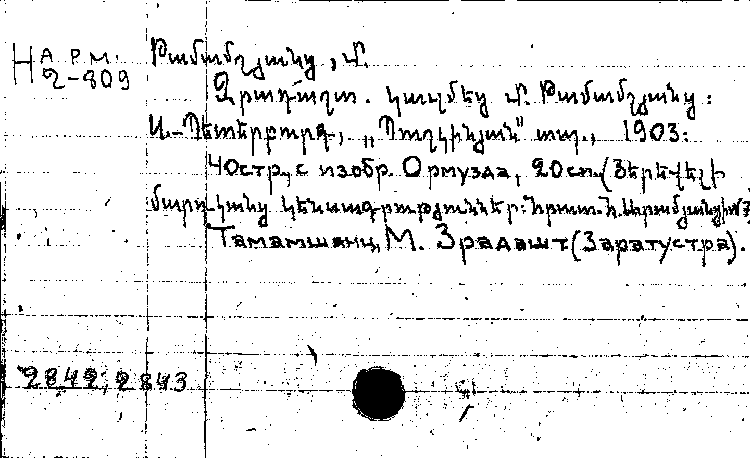 На рм.
2-809
Թամամշյանց, Մ.
Զրադաշտ. կազմեց Մ. Թամամշյանց:
Ս.-Պետերբուրգ, „Պուշկինյան" տպ., 1903:
40стр., с изобр. Ормузда, 20см. (Երևելի
մարդկանց կենսագրություններ: Հրատ.
Тамамшянц, М. Зрадашт (Заратустра).
2842; 2843